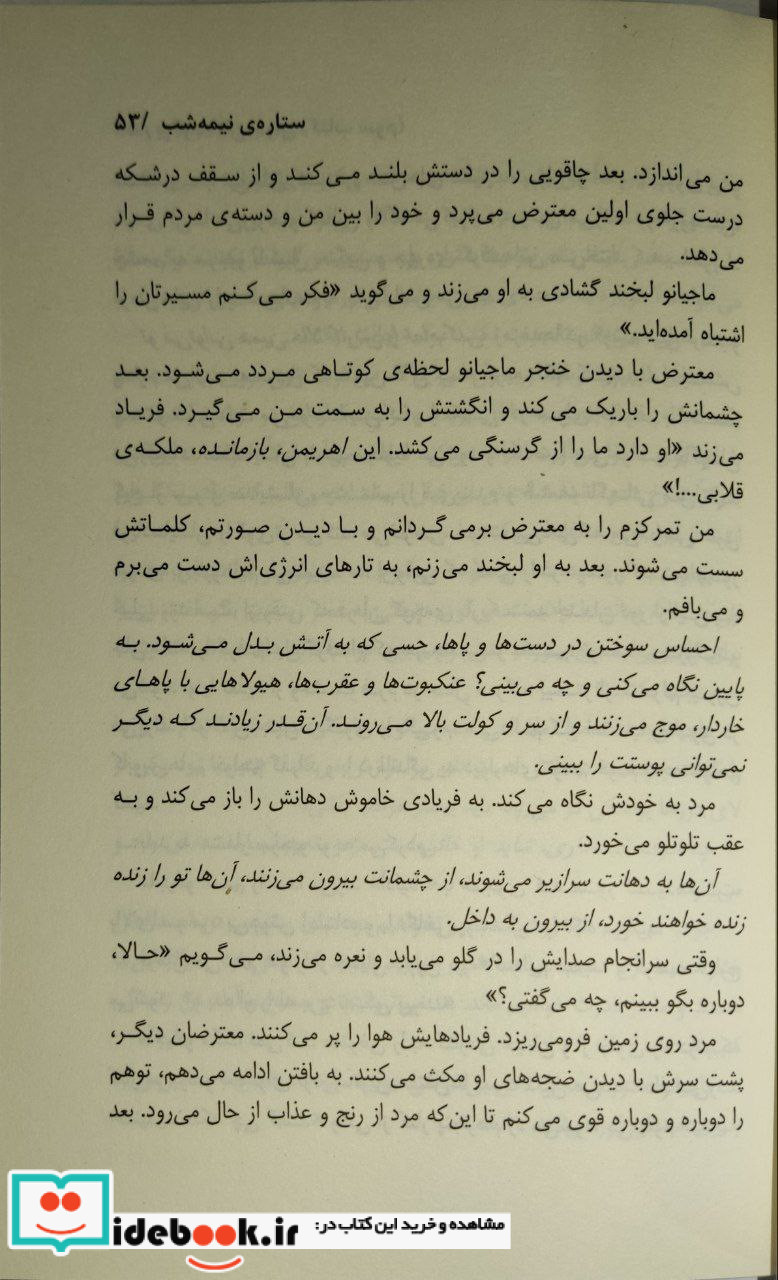 ستاره‌ی نیمه‌شب / ۵۳
من می‌اندازد. بعد چاقویی را در دستش بلند می‌کند و از سقف درشکه
درست جلوی اولین معترض می‌پرد و خود را بین من و دسته‌ی مردم قرار
می‌دهد.
ماجیانو لبخند گشادی به او می‌زند و می‌گوید «فکر می‌کنم مسیرتان را
اشتباه آمده‌اید.»
معترض با دیدن خنجر ماجیانو لحظه‌ی کوتاهی مردد می‌شود. بعد
چشمانش را باریک می‌کند و انگشتش را به سمت من می‌گیرد. فریاد
می‌زند «او دارد ما را از گرسنگی می‌کشد. این اهریمن، بازمانده، ملکه‌ی
قلابی...!»
من تمرکزم را به معترض برمی‌گردانم و با دیدن صورتم، کلماتش
سست می‌شوند. بعد به او لبخند می‌زنم، به تارهای انرژی‌اش دست می‌برم
و می‌بافم.
احساس سوختن در دست‌ها و پاها، حسی که به آتش بدل می‌شود. به
پایین نگاه می‌کنی و چه می‌بینی؟ عنکبوت‌ها و عقرب‌ها، هیولاهایی با پاهای
خاردار، موج می‌زنند و از سر و کولت بالا می‌روند. آن‌قدر زیادند که دیگر
نمی‌توانی پوستت را ببینی.
مرد به خودش نگاه می‌کند. به فریادی خاموش دهانش را باز می‌کند و به
عقب تلوتلو می‌خورد.
آن‌ها به دهانت سرازیر می‌شوند، از چشمانت بیرون می‌زنند، آن‌ها تو را زنده
زنده خواهند خورد، از بیرون به داخل.
وقتی سرانجام صدایش را در گلو می‌یابد و نعره می‌زند، می‌گویم «حالا،
دوباره بگو ببینم، چه می‌گفتی؟»
مرد روی زمین فرومی‌ریزد. فریادهایش هوا را پر می‌کنند. معترضان دیگر،
پشت سرش با دیدن ضجه‌های او مکث می‌کنند. به بافتن ادامه می‌دهم، توهم
را دوباره و دوباره قوی می‌کنم تا این‌که مرد از رنج و عذاب از حال می‌رود. بعد
مشاهده و خرید این کتاب در:
idebook.ir